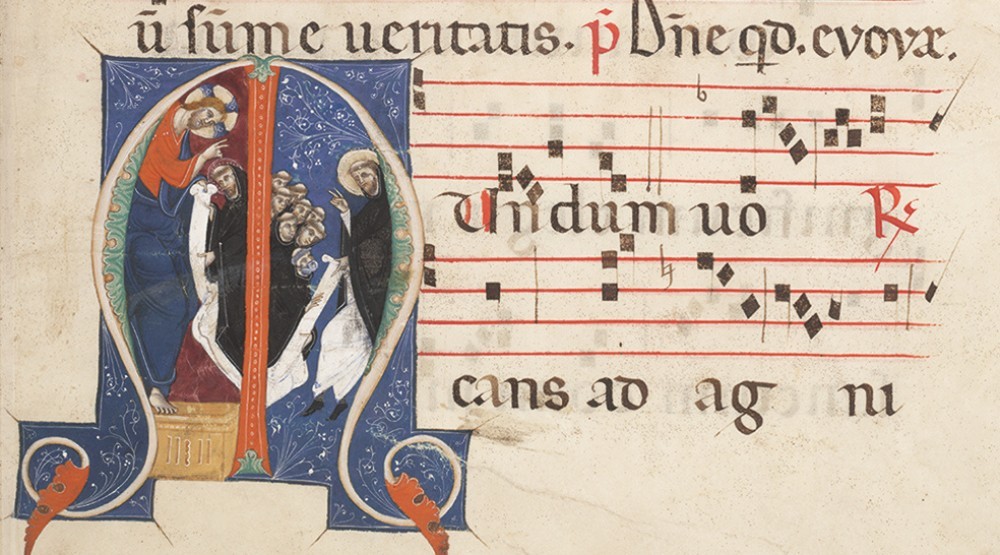 ū sūme ueritatis. p̄ Dn̄e qd. evovæ.
Mundum uo R℟
cans ad ag ni